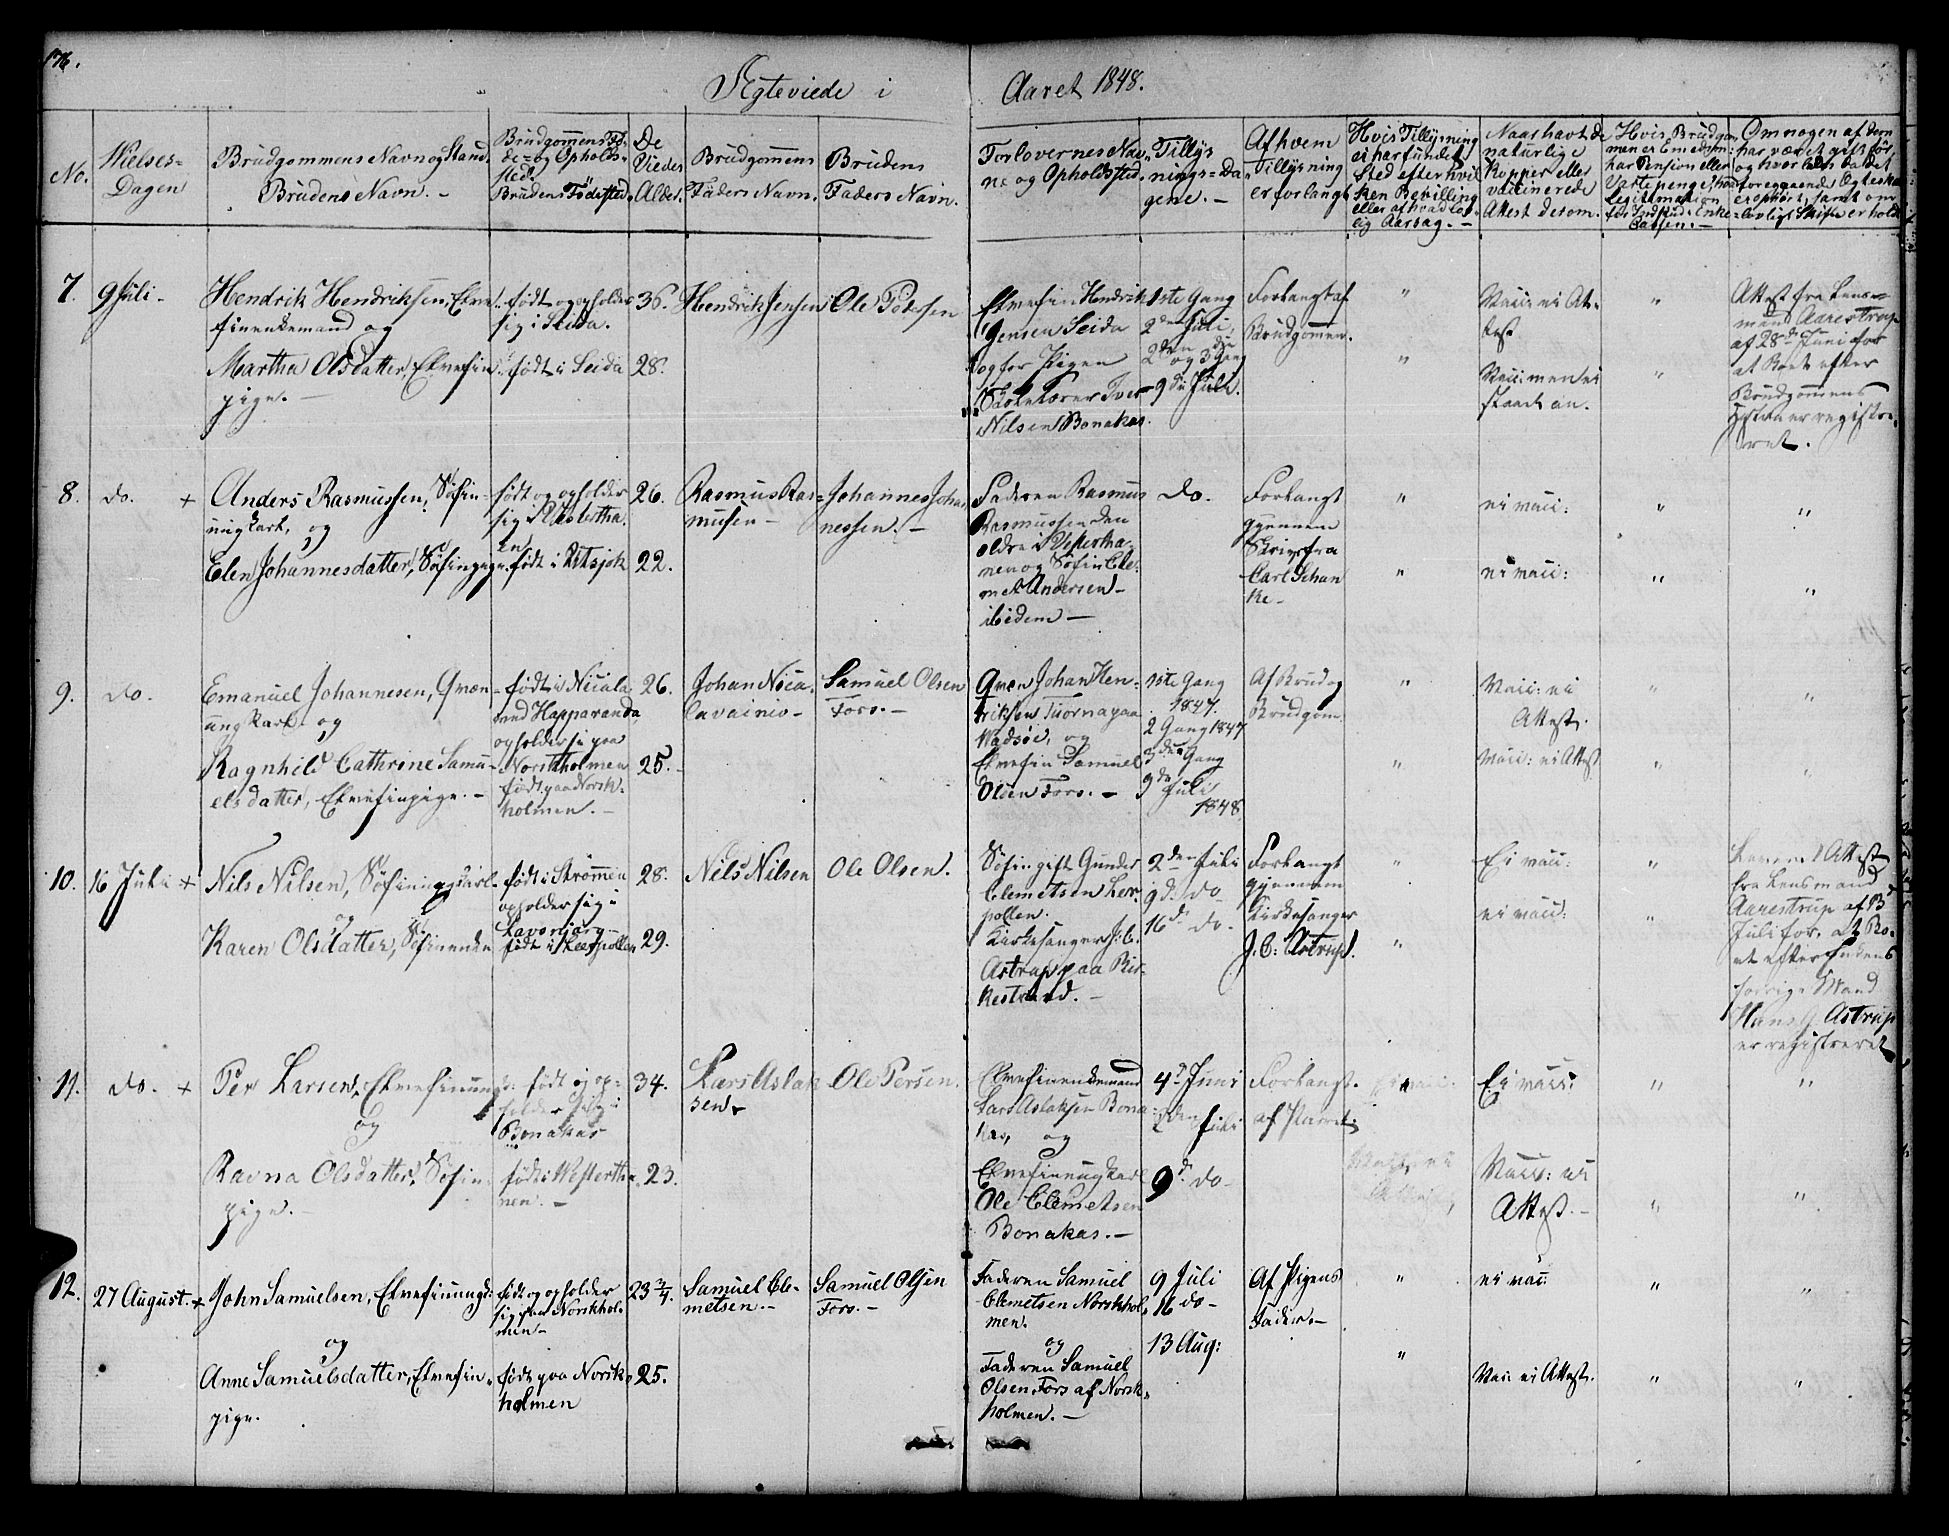 176.
Ægteviede i Aaret 1848.
No.
Vielses=
Dagen
Brudgommens Navn og Stand
Brudens Navn. –
Brudgommens Fö-
de= og Opholds=
sted
Brudens Födested
De
Viedes
Alder.
Brudgommens
Faders Navn.
Brudens
Faders Navn.
Forlovernes Nav-
ne og Opholdsted.
Tillys
nings=Da-
gene. –
Af hvem
Tillysning
er forlangt
Hvis Tillysning
ei har fundet
Sted efter hvil
ken Bevilling
eller af hvad lov-
lig Aarsag. –
Naar havt de
naturlige
Kopper eller
vaccinerede
Attest derom.
Hvis Brudgom
men er Embedsm:
har Pension eller
Vartepenge, hvad
Legitimation
for Indskud i Enke-
Cassen. –
Om nogen af dem
har været gift før
og hvorledes da det
foregaaende Ægteskab
er ophørt, samt om
lovligt Skifte er holdt
7.
9 Juli –
Hendrik Hendriksen, Elve-
finenkemand og
Martha Olsdatter, Elvefin
pige. –
født og opholder
sig i Seida.
født i Seida
36.
28.
Hendrik Jensen
Ole Pedersen
Elvefin Hendrik
Jensen Seida
og for Pigen
Skolelærer Iver
Nilsen Bonakas.
1ste Gang
2den Juli,
2den og 3die Gang
9de Juli.
Forlangt af
Brudgommen.
Vacc: ei At-
test
Vacc: men ei
Attest fra Lens-
mand Aarestrup
af 28de Juni for
at Boet efter
Brudgommens
er registre-
ret.
8.
do.
+
Anders Rasmussen, Søfin-
ungkarl, og
Elen Johannesdatter, Søfinpige.
født og opholder
sig i Vestertha-
en
født i Utsjok
26.
22.
Rasmus Ras=
musen –
Johannes Johan
nessen. –
Faderen Rasmus
Rasmussen den
ældre i Vestertha-
nen og Søfin Cle-
met Andersen –
ibidem –
do.
Forlangt
gjennem
Skriv fra
Carl Schan
ke –
ei vacc:
ei vacc:
9.
do.
Emanuel Johannesen, Qvæn-
ungkarl og
Ragnhild Cathrine Samu-
elsdatter, Elvefinpige. –
født i Nicala
ved Happaranda
opholder sig paa
Norskholmen
født paa Norsk-
holmen. –
26.
25.
Johan Nica-
lavainio –
Samuel Olsen
Fors. –
Qvæn Johan Hen-
riksen Tuorna paa
Wadsøe, og
Elvefin Samuel
Olsen Fors. –
1ste Gang
1847.
2 Gang 1847
3die Gang
9de Juli
1848
Af Brud og
Brudgom.
Vacc: ei
Attest.
Vacc: ei Attest
10.
16 Juli
+
Nils Nilsen, Søfinungkarl
og
Karen Olsdatter, Søfinenke
født i Strømmen
opholder sig i
Lavonjarg –
født i Leerpollen
28.
29.
Nils Nilsen
Ole Olsen.
Søfin gift Gunder
Clemetsen Ler-
pollen.
Kirkesanger J: C.
Astrup paa Bir-
kestrand. –
2den Juli
9d. do
16d. do –
Forlangt
gjennem
Kirkesanger
J. C: Astrup.
Ei vacc:
ei vacc:
Attest
fra Lensmand
Aarestrup af 13d
Juli for, at Bo-
et efter Enkens
forrige Mand
Hans J. Astrup
er registreret
11.
do.
+
Per Larsen, Elvefinung
og
Ravna Olsdatter, Søfin-
pige. –
født og op-
holder sig i
Bonakas
født i Vestertha-
nen. –
34.
23.
Lars Aslak
sen
Ole Persen.
Elvefinenkemand
Lars Aslaksen Bona
kas, og
Elvefinungkarl
Ole Clemetsen
Bonakas. –
4d Juni
2den Juli
9d. do –
Forlangt
af Parret.
Ei vacc:
Ei vacc:
Vacc: ei
Attest. –
12.
27 August.
+
John Samuelsen, Elvefinungk:
og
Anne Samuelsdatter, Elvefin-
pige.
født og opholder
sig paa Norskhol-
men –
født paa Norsk-
holmen
23 3/4.
25.
Samuel Cle-
metsen. –
Samuel Olsen
Fors. –
Faderen Samuel
Clemetsen Norskhol-
men.
og
Faderen Samuel
Olsen Fors af Norsk-
holmen. –
9 Juli
16 do –
13 Aug:
Af Pigens
Fader. –
ei vacc
Vacc: ei Attest.